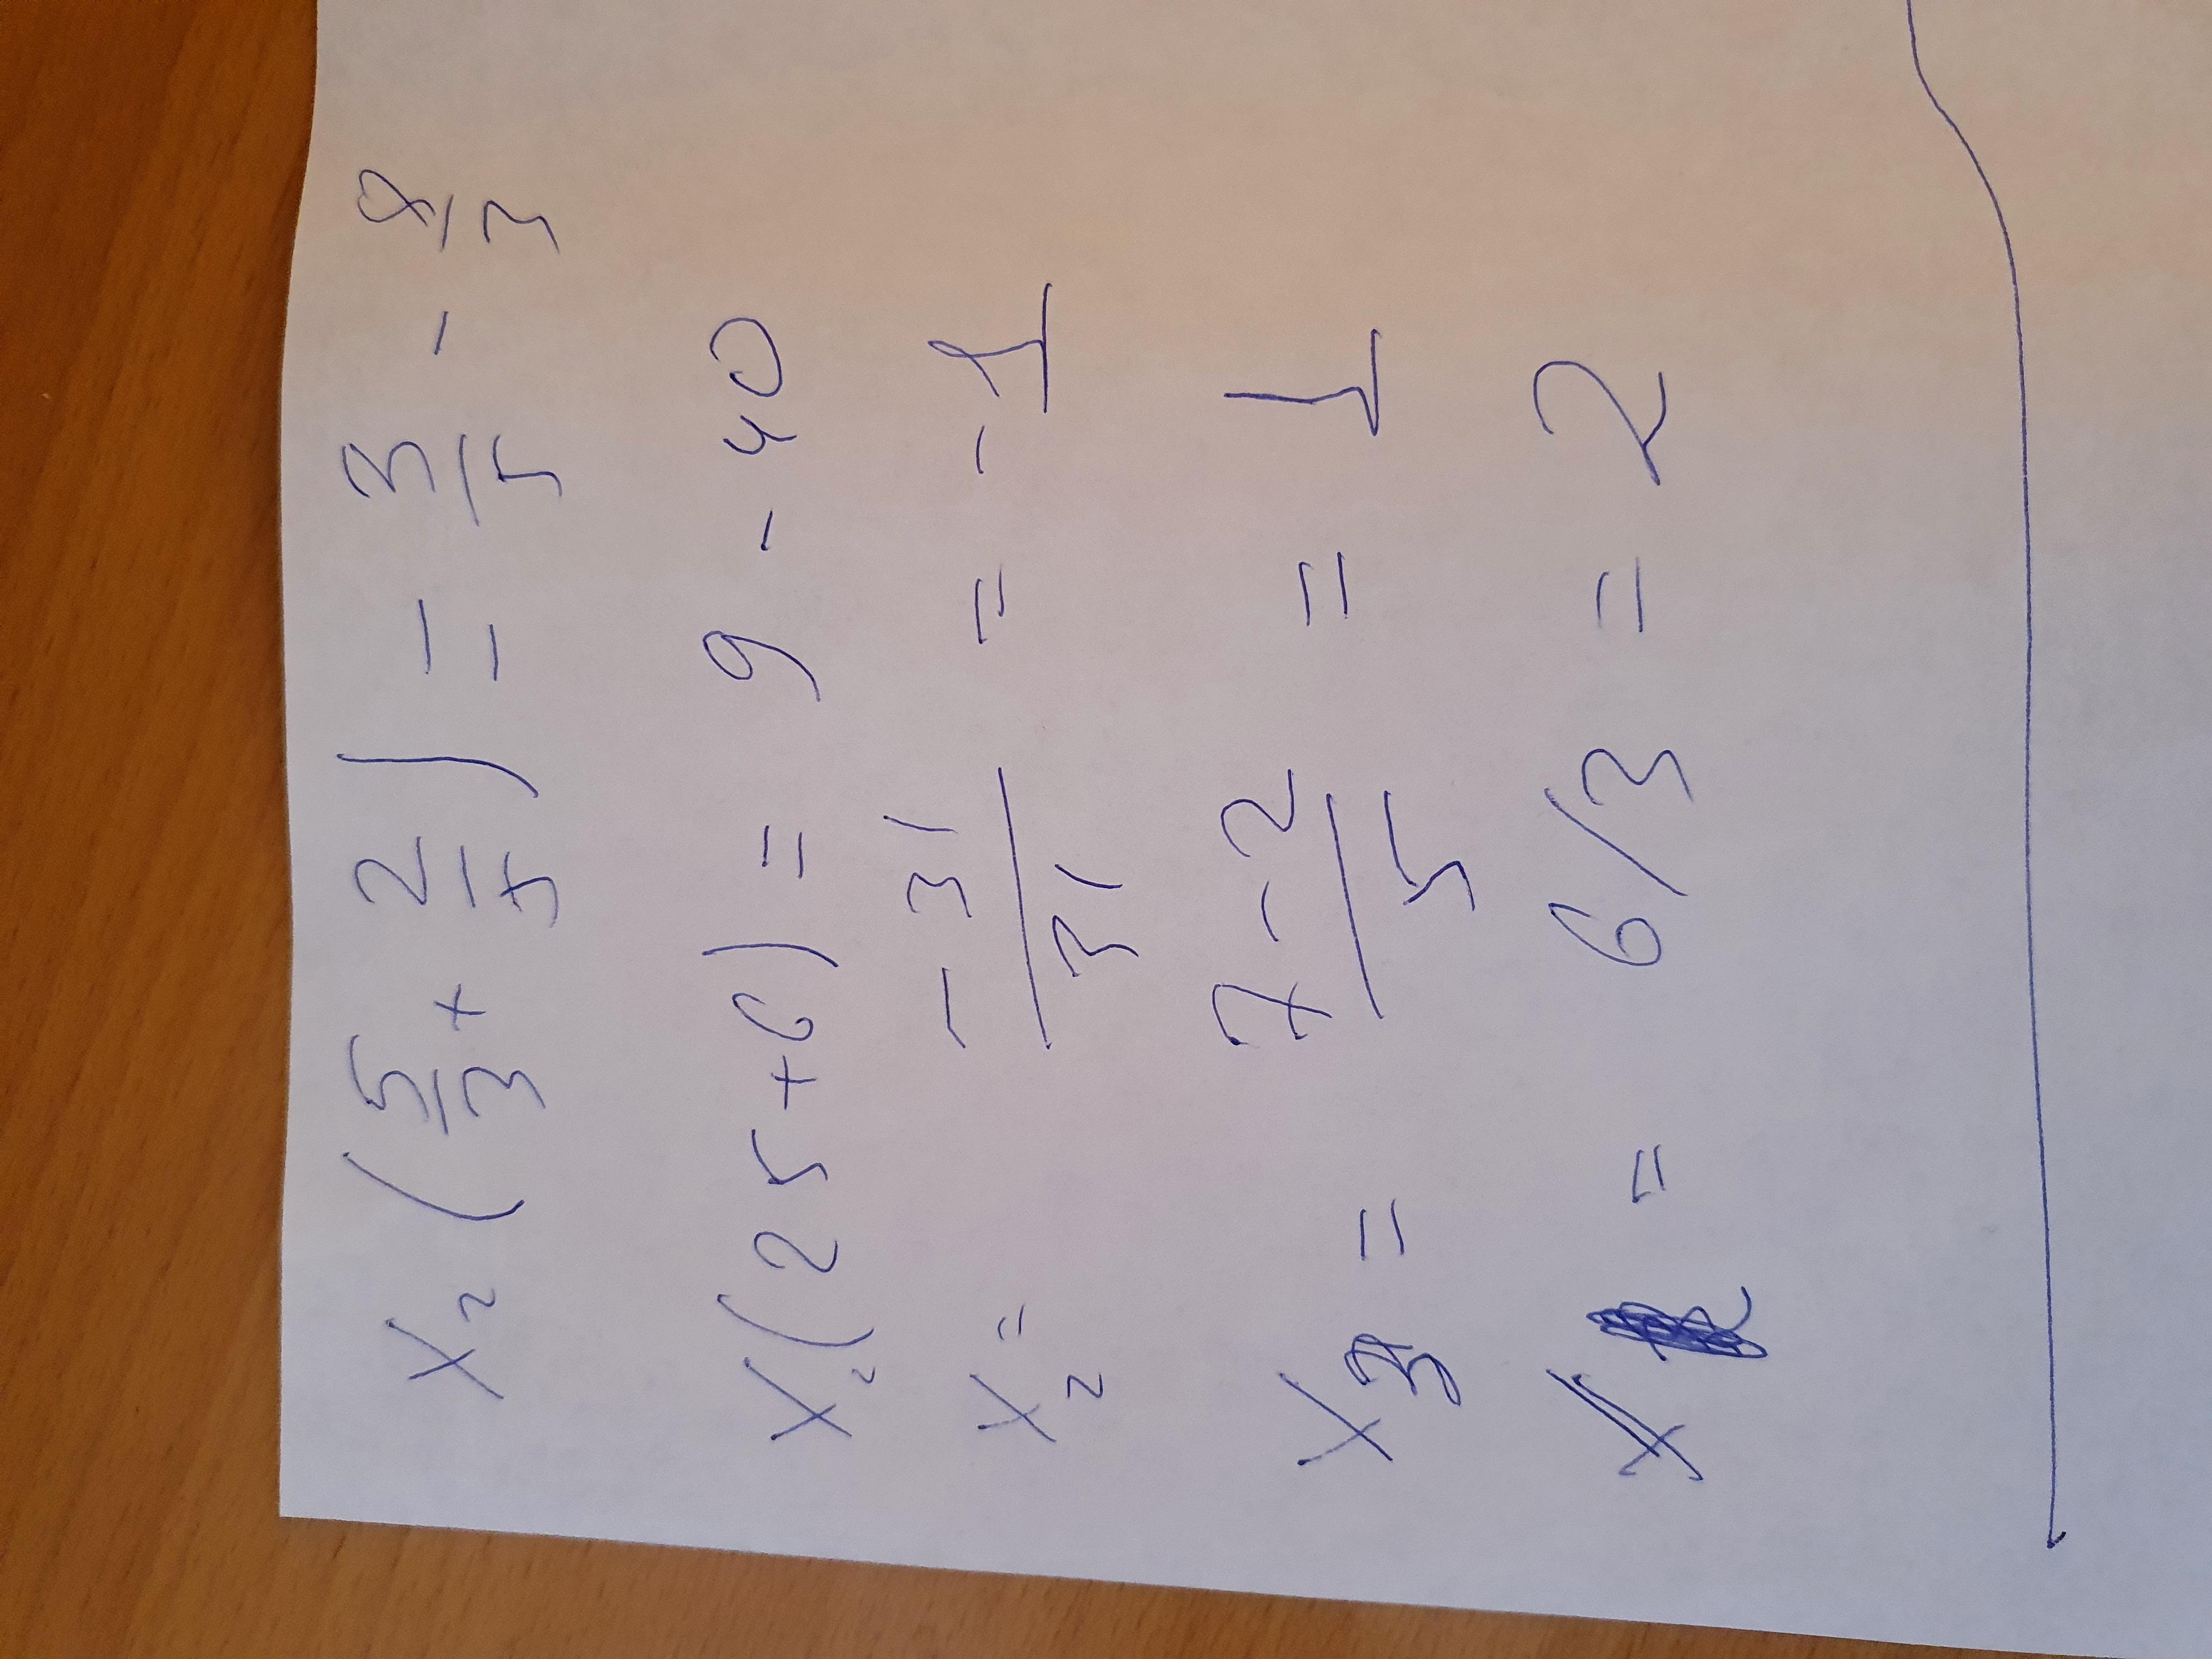 X₂ (5/3 + 2/5) = 3/5 - 8/3
X₂ (25 + 6) = 9 - 40
X₂ = -31/31 = -1
X₃ = (7-2)/5 = 1
X = 6/3 = 2